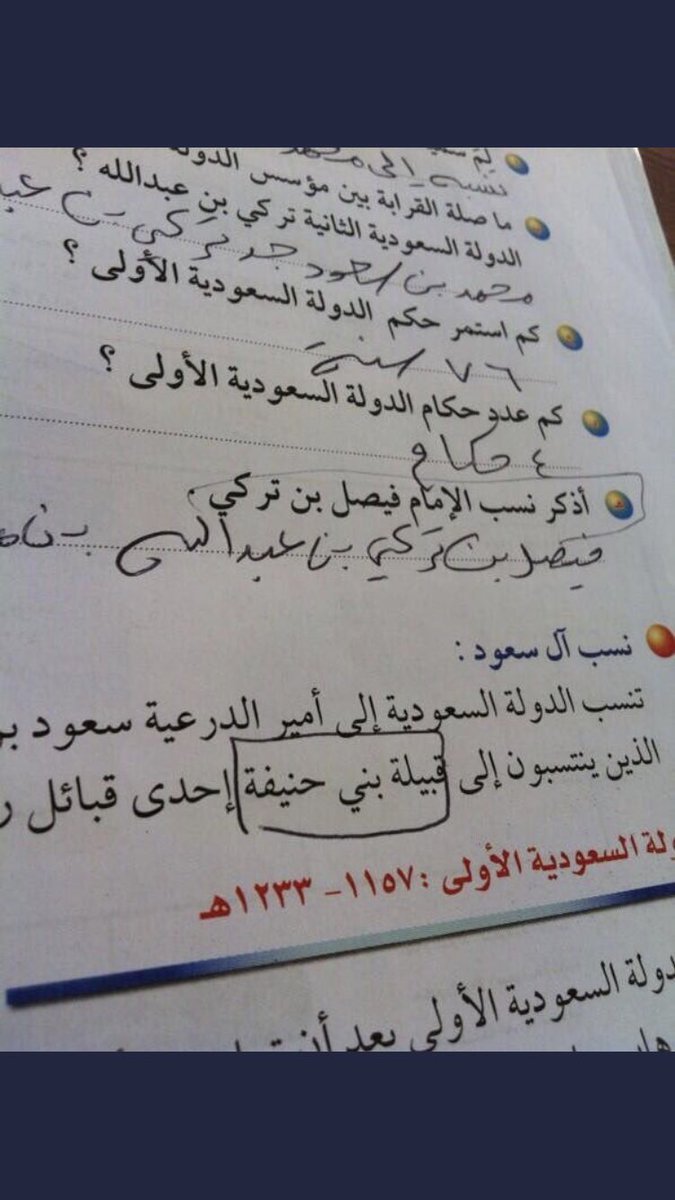 نسبه إلى محمد
ما صلة القرابة بين مؤسس الدولة
الدولة السعودية الثانية تركي بن عبدالله ؟
محمد بن سعود جد تركي بن عبد
كم استمر حكم الدولة السعودية الأولى ؟
٧٦ سنة
كم عدد حكام الدولة السعودية الأولى ؟
٤ حكام
أذكر نسب الإمام فيصل بن تركي .
فيصل بن تركي بن عبدالله بن
نسب آل سعود :
تنسب الدولة السعودية إلى أمير الدرعية سعود بن
الذين ينتسبون إلى قبيلة بني حنيفة إحدى قبائل
ولة السعودية الأولى : ١١٥٧- ١٢٣٣هـ
دولة السعودية الأولى بعد أن